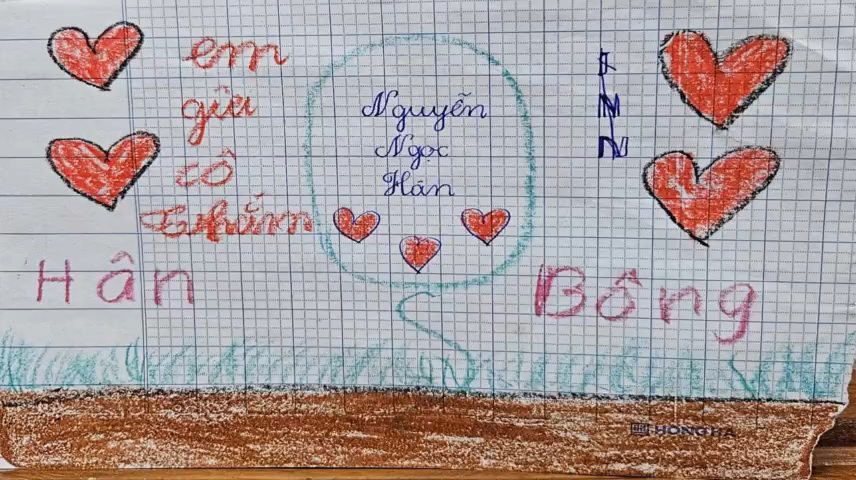 em
gửi
cô
Thắm
Nguyễn
Ngọc
Hân
Hân
Bông
HONG HA